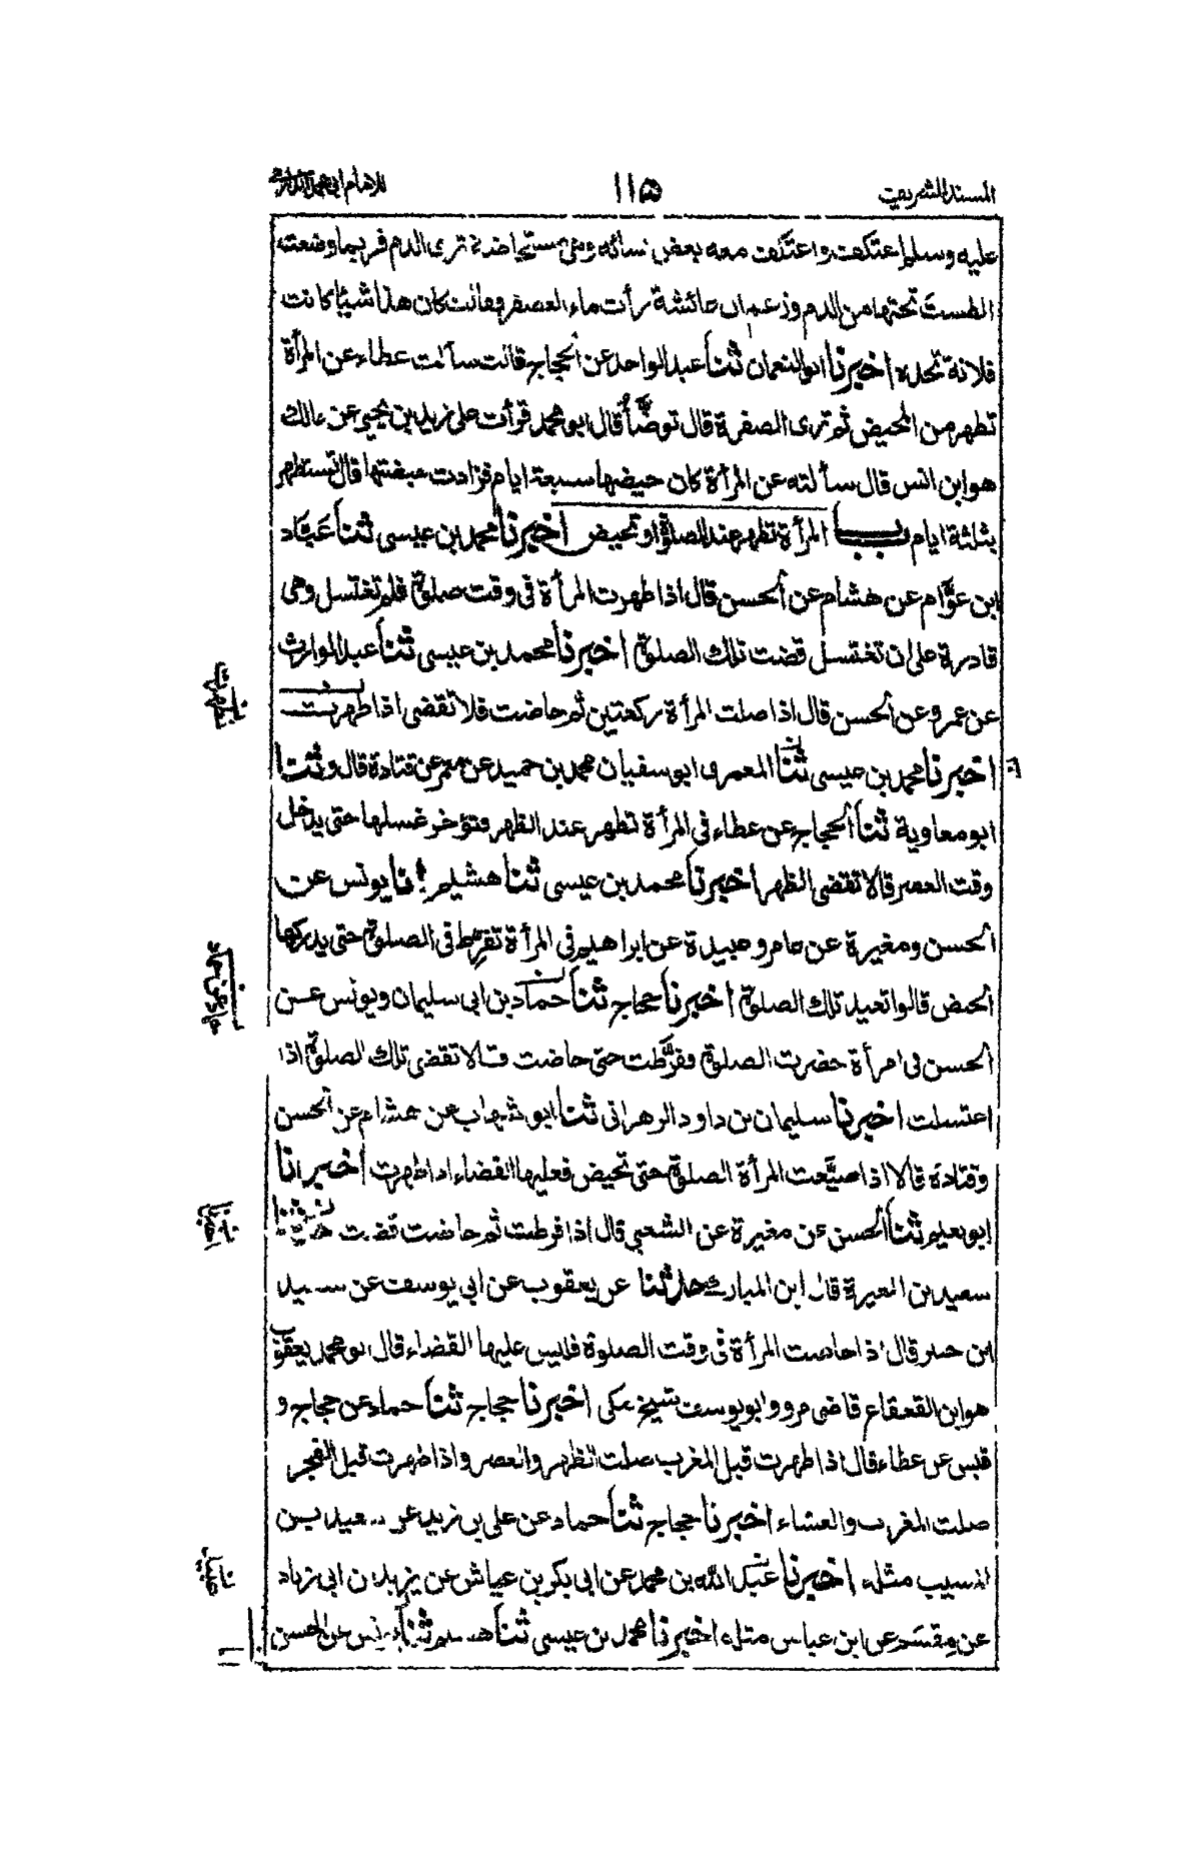 المسند الشريف ١١٥ للامام ابي محمد الدارمي
عليه وسلم اعتكف واعتكف معه بعض نسائه وهي مستحاضة ترى الدم فربما وضعت
الطست تحتها من الدم وزعم ان عائشة رأت ماء العصفر فقالت كان هذا شيئا كانت
فلانة تجده اخبرنا ابو النعمان ثنا عبد الواحد عن الحجاج قالت سألت عطاء عن المرأة
تطهر من المحيض ثم ترى الصفرة قال توضَّأُ قال ابو محمد قرأت على زيد بن يحيى عن مالك
هو ابن انس قال سألته عن المرأة كان حيضها سبعة ايام فزادت حيضتها قال تستظهر
بثلثة ايام باب المرأة تطهر عند الصلوٰة او تحيض اخبرنا محمد بن عيسى ثنا عَبَّاد
ابن عوَّام عن هشام عن الحسن قال اذا طهرت المرأة في وقت صلوٰة فلم تغتسل وهي
قادرة على ان تغتسل قضت تلك الصلوٰة اخبرنا محمد بن عيسى ثنا عبد الوارث
عن عمرو عن الحسن قال اذا صلت المرأة ركعتين ثم حاضت فلا تقضى اذا طهرت
اخبرنا محمد بن عيسى ثنا المعمرى ابو سفيان محمد بن حميد عن معمر عن قتادة قال وثنا
ابو معاوية ثنا الحجاج عن عطاء في المرأة تطهر عند الظهر فتؤخر غسلها حتى يدخل
وقت العصر قالا تقضى الظهر اخبرنا محمد بن عيسى ثنا هشيم انا يونس عن
الحسن ومغيرة عن عامر وعبيدة عن ابراهيم في المرأة تفرِّط في الصلوٰة حتى يدركها
الحيض قالوا تعيد تلك الصلوٰة اخبرنا حجاج ثنا حماد بن ابي سليمان ويونس عن
الحسن في امرأة حضرت الصلوٰة ففرَّطت حتى حاضت قالا تقضى تلك الصلوٰة اذا
اغتسلت اخبرنا سليمان بن داود الزهرانى ثنا ابو شهاب عن هشام عن الحسن
وقتادة قالا اذا ضيَّعت المرأة الصلوٰة حتى تحيض فعليها القضاء اذا طهرت اخبرنا
ابو نعيم ثنا الحسن عن مغيرة عن الشعبي قال اذا فرطت ثم حاضت قضت
سعيد بن المغيرة قال ابن المبارك حدثنا عن يعقوب عن ابي يوسف عن سعيد
بن جبير قال اذا حاضت المرأة في وقت الصلوة فليس عليها القضاء قال ابو محمد يعقوب
هو ابن القعقاع قاضى مرو وابو يوسف شيخ مكى اخبرنا حجاج ثنا حماد عن حجاج و
قيس عن عطاء قال اذا طهرت قبل المغرب صلت الظهر والعصر واذا طهرت قبل الفجر
صلت المغرب والعشاء اخبرنا حجاج ثنا حماد عن على بن زيد عن سعيد بن
المسيب مثله اخبرنا عبد الله بن محمد عن ابي بكر بن عياش عن يزيد بن ابي زياد
عن مقسم عن ابن عباس مثله اخبرنا محمد بن عيسى ثنا هشيم ثنا يونس عن الحسن